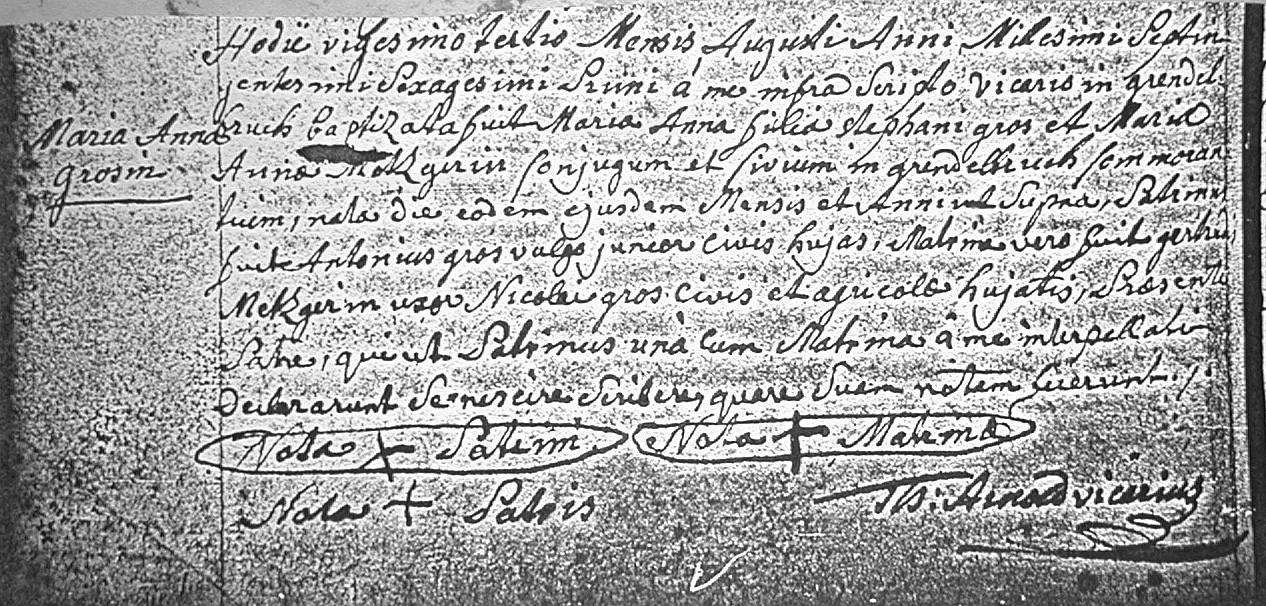 Hodie vigesimo tertio Mensis Augusti Anni Milesimi Septin
jentesimi Sexagesimi Primi à me infra Scripto Vicario in grendel-
Maria Anna
bruch baptizata fuit Maria Anna filia stephani gros et Maria
grosin
Annæ Metzgerin Conjugum et Civium in grendelbruch Commoran
tium, nata die eodem ejusdem Mensis et Anni ut Supra, Patrinus
fuit Antonius gros vulgo junior civis hujas, Matrina vero fuit gertrud
Metzgerin uxor Nicolai gros civis et agricolæ hujatis, Præsente
Patre, qui ut Patrinus unà cum Matrina â me interpellati
Declararunt Se nescire Scribere, quare Suam notam fecerunt ./.
Nota + Patrini Nota + Matrinæ
Nota + Patris
Th: Arnoad vicarius